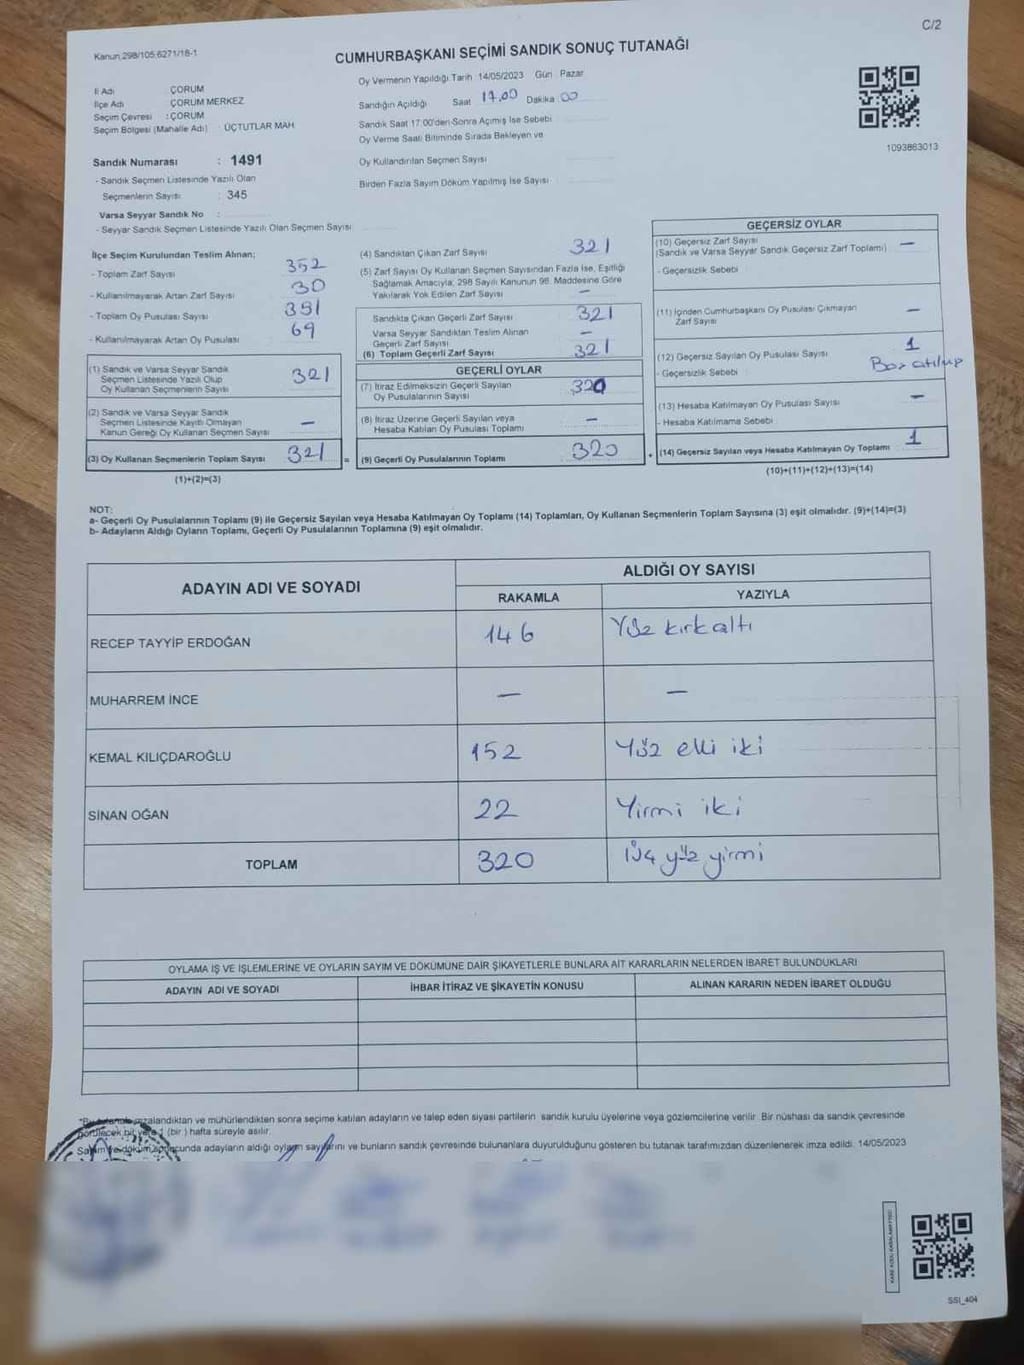 C/2
Kanun 298/105.6271/18-1
CUMHURBAŞKANI SEÇİMİ SANDIK SONUÇ TUTANAĞI
İl Adı ÇORUM
İlçe Adı ÇORUM MERKEZ
Seçim Çevresi : ÇORUM
Seçim Bölgesi (Mahalle Adı) : ÜÇTUTLAR MAH
Sandık Numarası : 1491
- Sandık Seçmen Listesinde Yazılı Olan
Seçmenlerin Sayısı : 345
Varsa Seyyar Sandık No :
- Seyyar Sandık Seçmen Listesinde Yazılı Olan Seçmen Sayısı
Oy Vermenin Yapıldığı Tarih 14/05/2023 Gün Pazar
Sandığın Açıldığı Saat 17.00 Dakika 00
Sandık Saat 17:00'den Sonra Açılmış İse Sebebi
Oy Verme Saati Bitiminde Sırada Bekleyen ve
Oy Kullandırılan Seçmen Sayısı
Birden Fazla Sayım Döküm Yapılmış İse Sayısı
1093863013
İlçe Seçim Kurulundan Teslim Alınan;
- Toplam Zarf Sayısı 352
- Kullanılmayarak Artan Zarf Sayısı 30
- Toplam Oy Pusulası Sayısı 391
- Kullanılmayarak Artan Oy Pusulası 69
(1) Sandık ve Varsa Seyyar Sandık
Seçmen Listesinde Yazılı Olup
Oy Kullanan Seçmenlerin Sayısı 321
(2) Sandık ve Varsa Seyyar Sandık
Seçmen Listesinde Kayıtlı Olmayan
Kanun Gereği Oy Kullanan Seçmen Sayısı —
(3) Oy Kullanan Seçmenlerin Toplam Sayısı 321 =
(1)+(2)=(3)
(4) Sandıktan Çıkan Zarf Sayısı 321
(5) Zarf Sayısı Oy Kullanan Seçmen Sayısından Fazla İse, Eşitliği
Sağlamak Amacıyla, 298 Sayılı Kanunun 98. Maddesine Göre
Yakılarak Yok Edilen Zarf Sayısı —
Sandıkta Çıkan Geçerli Zarf Sayısı 321
Varsa Seyyar Sandıktan Teslim Alınan
Geçerli Zarf Sayısı —
(6) Toplam Geçerli Zarf Sayısı 321
GEÇERLİ OYLAR
(7) İtiraz Edilmeksizin Geçerli Sayılan
Oy Pusulalarının Sayısı 320
(8) İtiraz Üzerine Geçerli Sayılan veya
Hesaba Katılan Oy Pusulası Toplamı —
(9) Geçerli Oy Pusulalarının Toplamı 320 +
GEÇERSİZ OYLAR
(10) Geçersiz Zarf Sayısı —
(Sandık ve Varsa Seyyar Sandık Geçersiz Zarf Toplamı)
- Geçersizlik Sebebi
(11) İçinden Cumhurbaşkanı Oy Pusulası Çıkmayan
Zarf Sayısı —
(12) Geçersiz Sayılan Oy Pusulası Sayısı 1
- Geçersizlik Sebebi
(13) Hesaba Katılmayan Oy Pusulası Sayısı —
- Hesaba Katılmama Sebebi
(14) Geçersiz Sayılan veya Hesaba Katılmayan Oy Toplamı 1
(10)+(11)+(12)+(13)=(14)
NOT:
a- Geçerli Oy Pusulalarının Toplamı (9) ile Geçersiz Sayılan veya Hesaba Katılmayan Oy Toplamı (14) Toplamları, Oy Kullanan Seçmenlerin Toplam Sayısına (3) eşit olmalıdır. (9)+(14)=(3)
b- Adayların Aldığı Oyların Toplamı, Geçerli Oy Pusulalarının Toplamına (9) eşit olmalıdır.
ADAYIN ADI VE SOYADI
ALDIĞI OY SAYISI
RAKAMLA YAZIYLA
RECEP TAYYİP ERDOĞAN 146 Yüz kırk altı
MUHARREM İNCE — —
KEMAL KILIÇDAROĞLU 152 Yüz elli iki
SİNAN OĞAN 22 Yirmi iki
TOPLAM 320 Üç yüz yirmi
OYLAMA İŞ VE İŞLEMLERİNE VE OYLARIN SAYIM VE DÖKÜMÜNE DAİR ŞİKAYETLERLE BUNLARA AİT KARARLARIN NELERDEN İBARET BULUNDUKLARI
ADAYIN ADI VE SOYADI İHBAR İTİRAZ VE ŞİKAYETİN KONUSU ALINAN KARARIN NEDEN İBARET OLDUĞU
imzalandıktan ve mühürlendikten sonra seçime katılan adayların ve talep eden siyasi partilerin sandık kurulu üyelerine veya gözlemcilerine verilir. Bir nüshası da sandık çevresinde
görülecek bir yere 1 (bir ) hafta süreyle asılır.
Sayım ve döküm sonucunda adayların aldığı oyların sayılarını ve bunların sandık çevresinde bulunanlara duyurulduğunu gösteren bu tutanak tarafımızdan düzenlenerek imza edildi. 14/05/2023
SSI_404